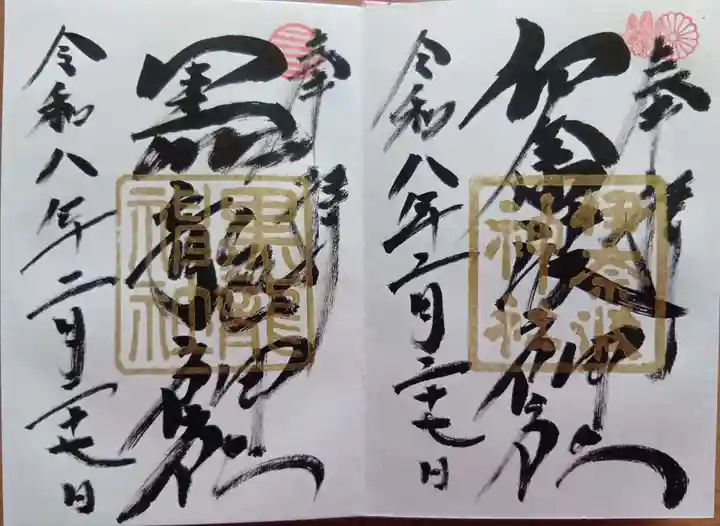 奉拝
伊奈波神社
伊奈波
神社
令和八年二月二十七日
奉拝
黒龍神社
黒龍
神社
令和八年二月二十七日